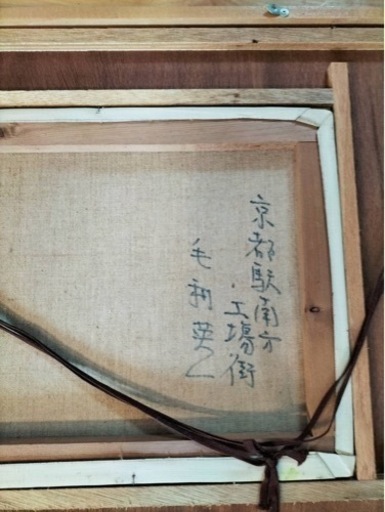 京都駅南方
工場街
毛利英乙